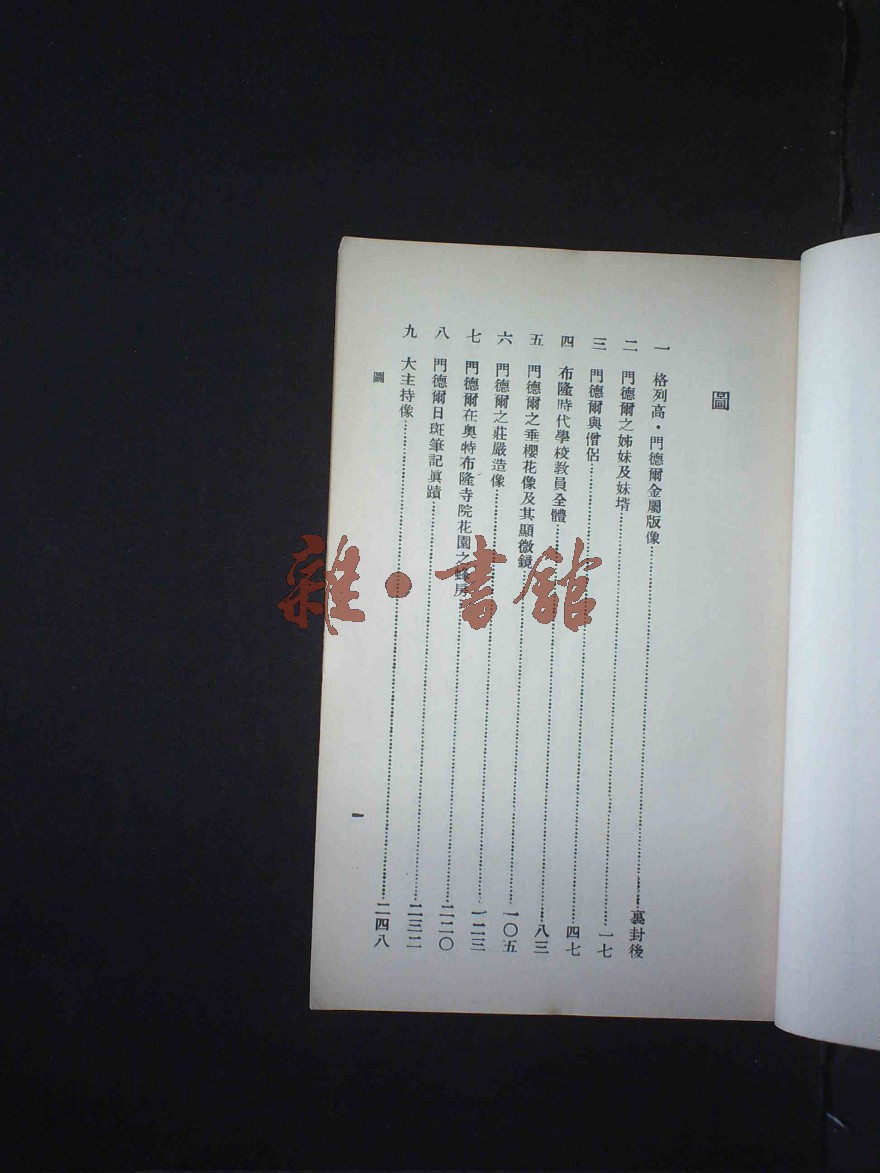 圖
一 格列高・門德爾金屬版像……裏封後
二 門德爾之姊妹及妹壻……一七
三 門德爾與僧侶……四七
四 布隆時代學校教員全體……八三
五 門德爾之垂櫻花像及其顯微鏡……一〇五
六 門德爾之莊嚴造像……一二三
七 門德爾在奧特布隆寺院花園之蜂房……二二〇
八 門德爾日斑筆記眞蹟……二三二
九 大主持像……二四八
圖
一
雜・書館